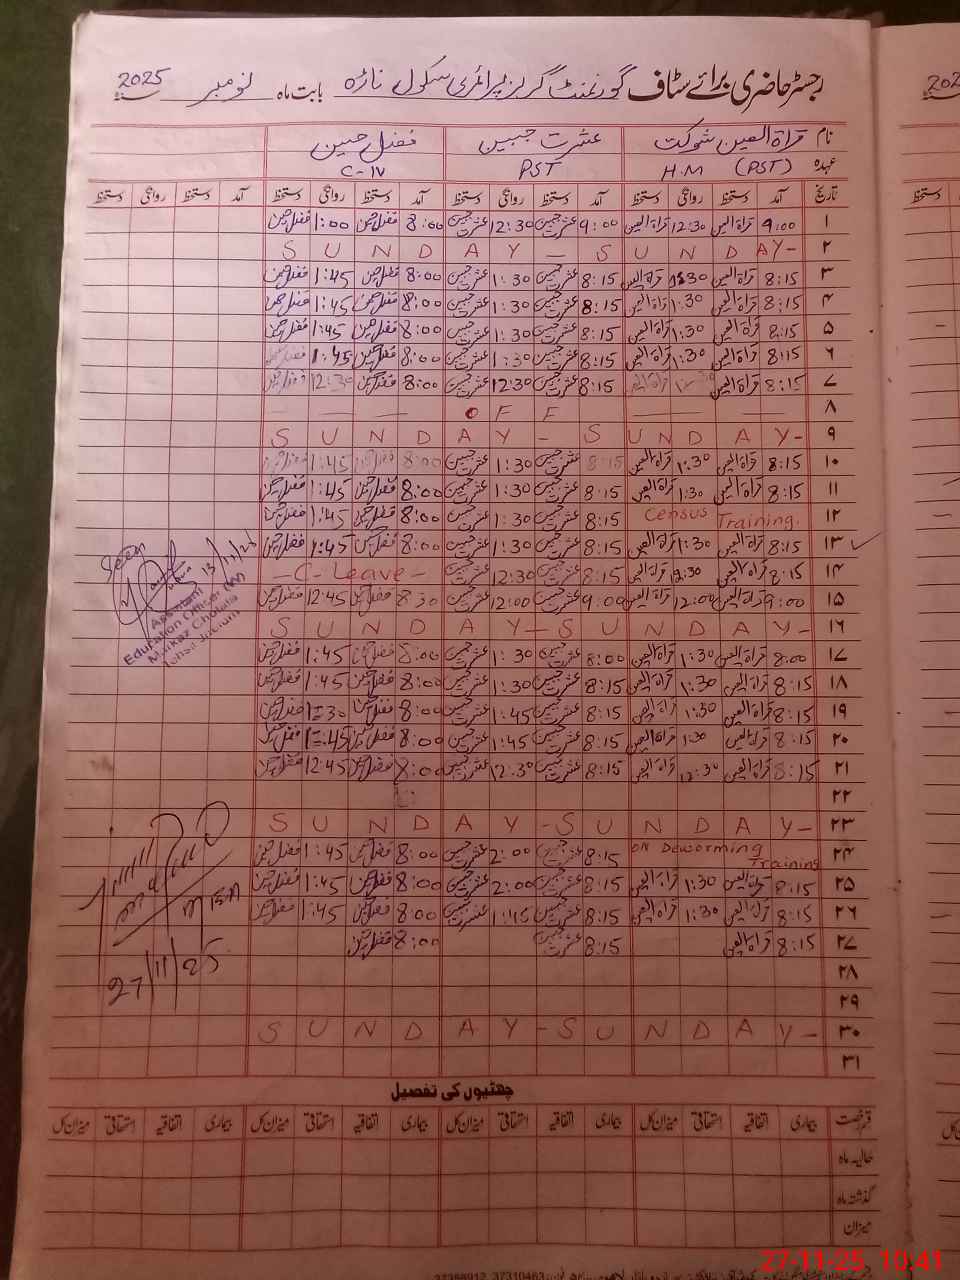 رجسٹر حاضری برائے سٹاف گورنمنٹ گرلز پرائمری سکول ناڑہ بابت ماہ نومبر 2025
نام قراۃ العین شوکت عشرت جبین فضل حسین
عہدہ H.M (PST) PST C-IV
تاریخ آمد دستخط روانگی دستخط آمد دستخط روانگی دستخط آمد دستخط روانگی دستخط آمد دستخط روانگی دستخط
۱ 9:00 قراۃ العین 12:30 قراۃ العین 9:00 عشرت جبین 12:30 عشرت جبین 8:00 فضل حسین 1:00 فضل حسین
۲ S U N D A Y - S U N D A Y -
۳ 8:15 قراۃ العین 1:30 قراۃ العین 8:15 عشرت جبین 1:30 عشرت جبین 8:00 فضل حسین 1:45 فضل حسین
۴ 8:15 قراۃ العین 1:30 قراۃ العین 8:15 عشرت جبین 1:30 عشرت جبین 8:00 فضل حسین 1:45 فضل حسین
۵ 8:15 قراۃ العین 1:30 قراۃ العین 8:15 عشرت جبین 1:30 عشرت جبین 8:00 فضل حسین 1:45 فضل حسین
۶ 8:15 قراۃ العین 1:30 قراۃ العین 8:15 عشرت جبین 1:30 عشرت جبین 8:00 فضل حسین 1:45 فضل حسین
۷ 8:15 قراۃ العین قراۃ العین 8:15 عشرت جبین 12:30 عشرت جبین 8:00 فضل حسین 12:30 فضل حسین
۸ — — — O F F — — —
۹ S U N D A Y - S U N D A Y -
۱۰ 8:15 قراۃ العین 1:30 قراۃ العین 8:15 عشرت جبین 1:30 عشرت جبین 8:00 فضل حسین 1:45 فضل حسین
۱۱ 8:15 قراۃ العین 1:30 قراۃ العین 8:15 عشرت جبین 1:30 عشرت جبین 8:00 فضل حسین 1:45 فضل حسین
۱۲ Census Training. 8:15 عشرت جبین 1:30 عشرت جبین 8:00 فضل حسین 1:45 فضل حسین
۱۳ 8:15 قراۃ العین 1:30 قراۃ العین 8:15 عشرت جبین 1:30 عشرت جبین 8:00 فضل حسین 1:45 فضل حسین
۱۴ 8:15 قراۃ العین 12:30 قراۃ العین 8:15 عشرت جبین 12:30 عشرت جبین - C - Leave -
۱۵ 9:00 قراۃ العین 12:00 قراۃ العین 9:00 عشرت جبین 12:00 عشرت جبین 8:30 فضل حسین 12:45 فضل حسین
۱۶ S U N D A Y - S U N D A Y -
۱۷ 8:00 قراۃ العین 1:30 قراۃ العین 8:00 عشرت جبین 1:30 عشرت جبین 8:00 فضل حسین 1:45 فضل حسین
۱۸ 8:15 قراۃ العین 1:30 قراۃ العین 8:15 عشرت جبین 1:30 عشرت جبین 8:00 فضل حسین 1:45 فضل حسین
۱۹ 8:15 قراۃ العین 1:30 قراۃ العین 8:15 عشرت جبین 1:45 عشرت جبین 8:00 فضل حسین 1:30 فضل حسین
۲۰ 8:15 قراۃ العین 1:30 قراۃ العین 8:15 عشرت جبین 1:45 عشرت جبین 8:00 فضل حسین 1:45 فضل حسین
۲۱ 8:15 قراۃ العین 12:30 قراۃ العین 8:15 عشرت جبین 12:30 عشرت جبین 8:00 فضل حسین 12:45 فضل حسین
۲۲
۲۳ S U N D A Y - S U N D A Y -
۲۴ on Deworming Training 8:15 عشرت جبین 2:00 عشرت جبین 8:00 فضل حسین 1:45 فضل حسین
۲۵ 8:15 قراۃ العین 1:30 قراۃ العین 8:15 عشرت جبین 2:00 عشرت جبین 8:00 فضل حسین 1:45 فضل حسین
۲۶ 8:15 قراۃ العین 1:30 قراۃ العین 8:15 عشرت جبین 1:45 عشرت جبین 8:00 فضل حسین 1:45 فضل حسین
۲۷ 8:15 قراۃ العین 8:15 عشرت جبین 8:00 فضل حسین
۲۸
۲۹
۳۰ S U N D A Y - S U N D A Y -
۳۱
Seen
13/11/25
Assistant
Education Officer (W)
Markaz Chotala
Tehsil Jhelum
27/11/25
چھٹیوں کی تفصیل
قسم رخصت بیماری اتفاقیہ استحقاقی میزان کل بیماری اتفاقیہ استحقاقی میزان کل بیماری اتفاقیہ استحقاقی میزان کل بیماری اتفاقیہ استحقاقی میزان کل
حالیہ ماہ
گذشتہ ماہ
میزان
27-11-25 10:41